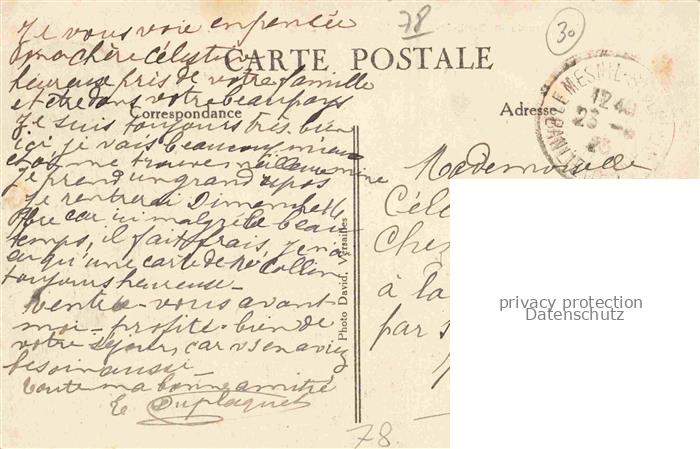 78
30
CARTE POSTALE
Correspondance
Adresse
LE MESNIL-S
12 40
23
Je vous voie en pensée
ma chère Célestine
heureux près de votre famille
et être dans votre beau pays
Je suis toujours très bien
ici, je vais beaucoup mieux
et on me trouve meilleure mine
Je prend un grand repos
Je rentrerai Dimanche
car ici malgré le beau
temps, il fait frais, je n'ai
qu'une carte de
toujours heureuse -
Rentrez - vous avant
moi - profité - bien de
votre séjour, car vs en aviez
besoin aussi -
Toute ma bonne amitié
E Duplaquet
Photo David, Versailles
Mademoiselle
Céle
Chez
à la
par s
78.
privacy protection
Datenschutz